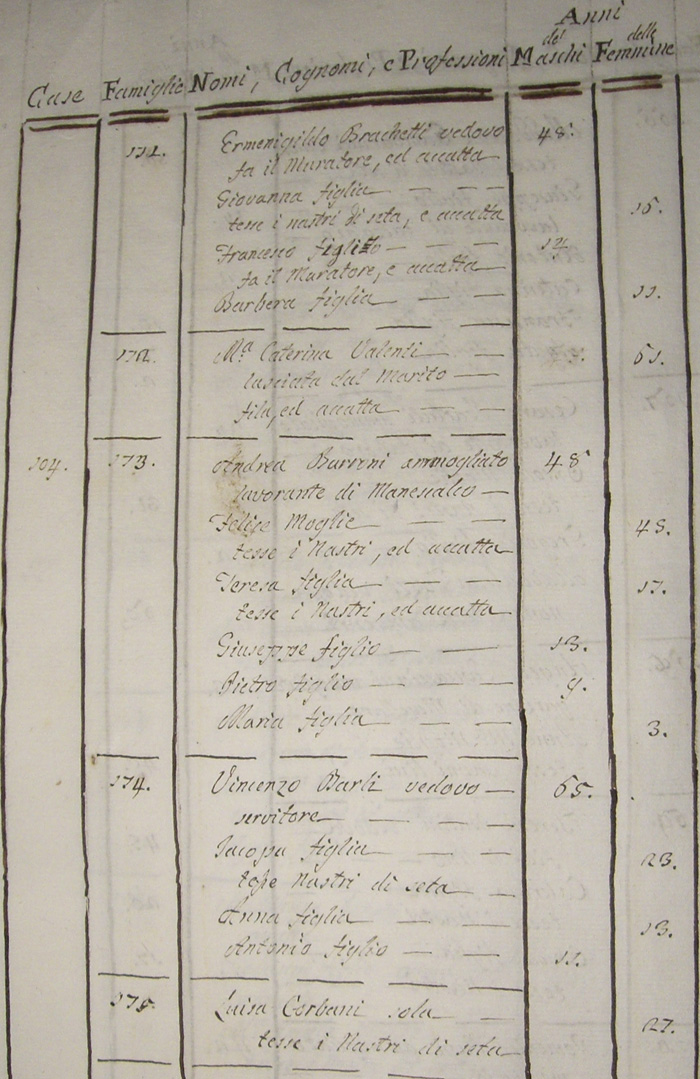 Anni
Case Famiglie Nomi, Cognomi, e Professioni de' Maschi delle Femmine
171. Ermenigildo Brachetti vedovo 48.
fa il Muratore, ed accatta
Giovanna figlia 15.
tesse i nastri di seta, e accatta
Francesco figlio 14
fa il Muratore, e accatta
Barbera figlia 11.
172. Mª Caterina Valenti 61.
lasciata dal Marito
fila, ed accatta
104. 173. Andrea Burroni ammogliato 48
lavorante di Manescalco
Felice Moglie 43.
tesse i Nastri, ed accatta
Teresa figlia 17.
tesse i Nastri, ed accatta
Giuseppe figlio 13.
Pietro figlio 9.
Maria figlia 3.
174. Vincenzo Barli vedovo 65.
servitore
Jacopa figlia 23.
tesse Nastri di seta
Anna figlia 13.
Antonio figlio 11.
175. Luisa Corbani sola 27.
tesse i Nastri di seta